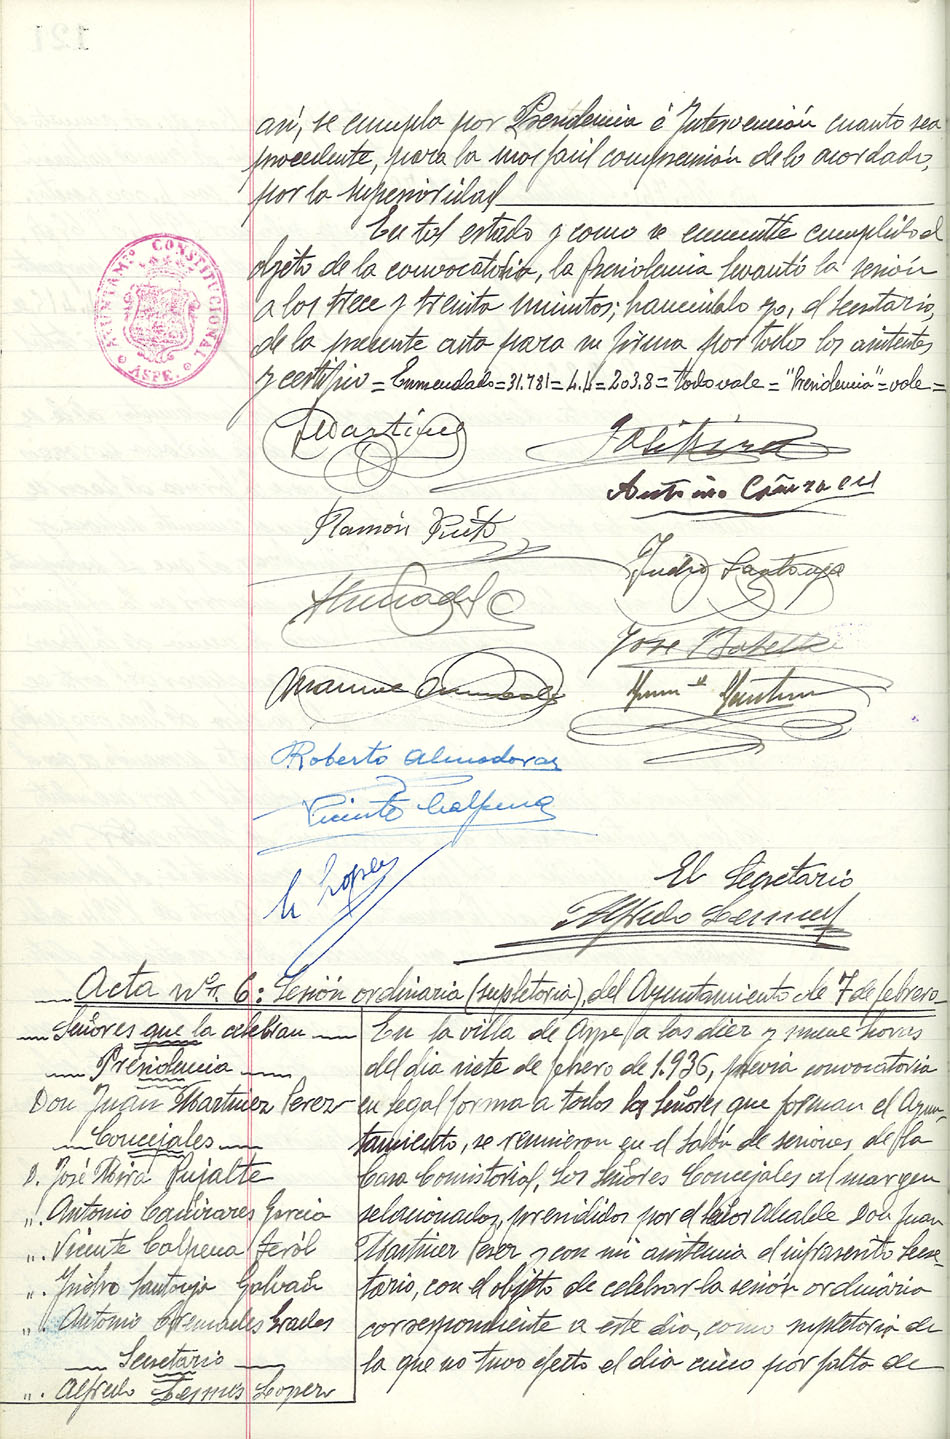 así, se cumpla por Presidencia é Intervención cuanto sea
procedente, para la mas fácil comprensión de lo acordado,
por la superioridad
En tal estado y como se encuentre cumplido el
objeto de la convocatoria, la Presidencia levantó la sesión
a las trece y treinta minutos; haciéndolo yo, el Secretario,
de la presente acta para su firma por todos los asistentes
y certifico = Enmendado = 31.781 = = 203.8 = todo vale = "Presidencia" = vale =
AYUNTAMTO CONSTITUCIONAL
ASPE.
Martinez
José Mira
Antonio Cañizares
Ramón Prieto
Isidro Santonja
José Botella
Roberto Almodovar
Vicente Calpena
López
El Secretario
Alfredo Lemus
Acta nº 6: Sesión ordinaria (supletoria), del Ayuntamiento de 7 de febrero
Señores que la celebran
Presidencia
Don Juan Martinez Perez
Concejales
D. José Mira Pujalte
". Antonio Cañizares Garcia
". Vicente Calpena Feról
". Isidro Santonja Galván
". Antonio Cremades Grades
Secretario
". Alfredo Lemus Lopez
En la villa de Aspe a las diez y nueve horas
del dia siete de febrero de 1.936, previa convocatoria
en legal forma a todos los Señores que forman el Ayun-
tamiento, se reunieron en el Salón de sesiones de la
Casa Consistorial, los Señores Concejales al margen
relacionados, presididos por el Señor Alcalde Don Juan
Martinez Perez y con mi asistencia el infrascrito Secre-
tario, con el objeto de celebrar la sesión ordinaria
correspondiente a este dia, como supletoria de
la que no tuvo efecto el dia cinco por falta de